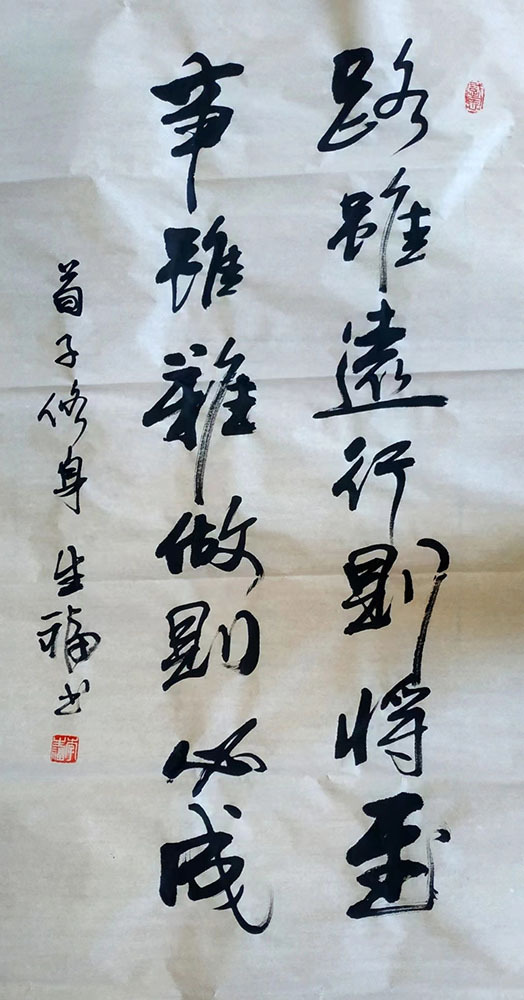 路雖遠行則將至
事雖難做則必成
荀子修身 生福书